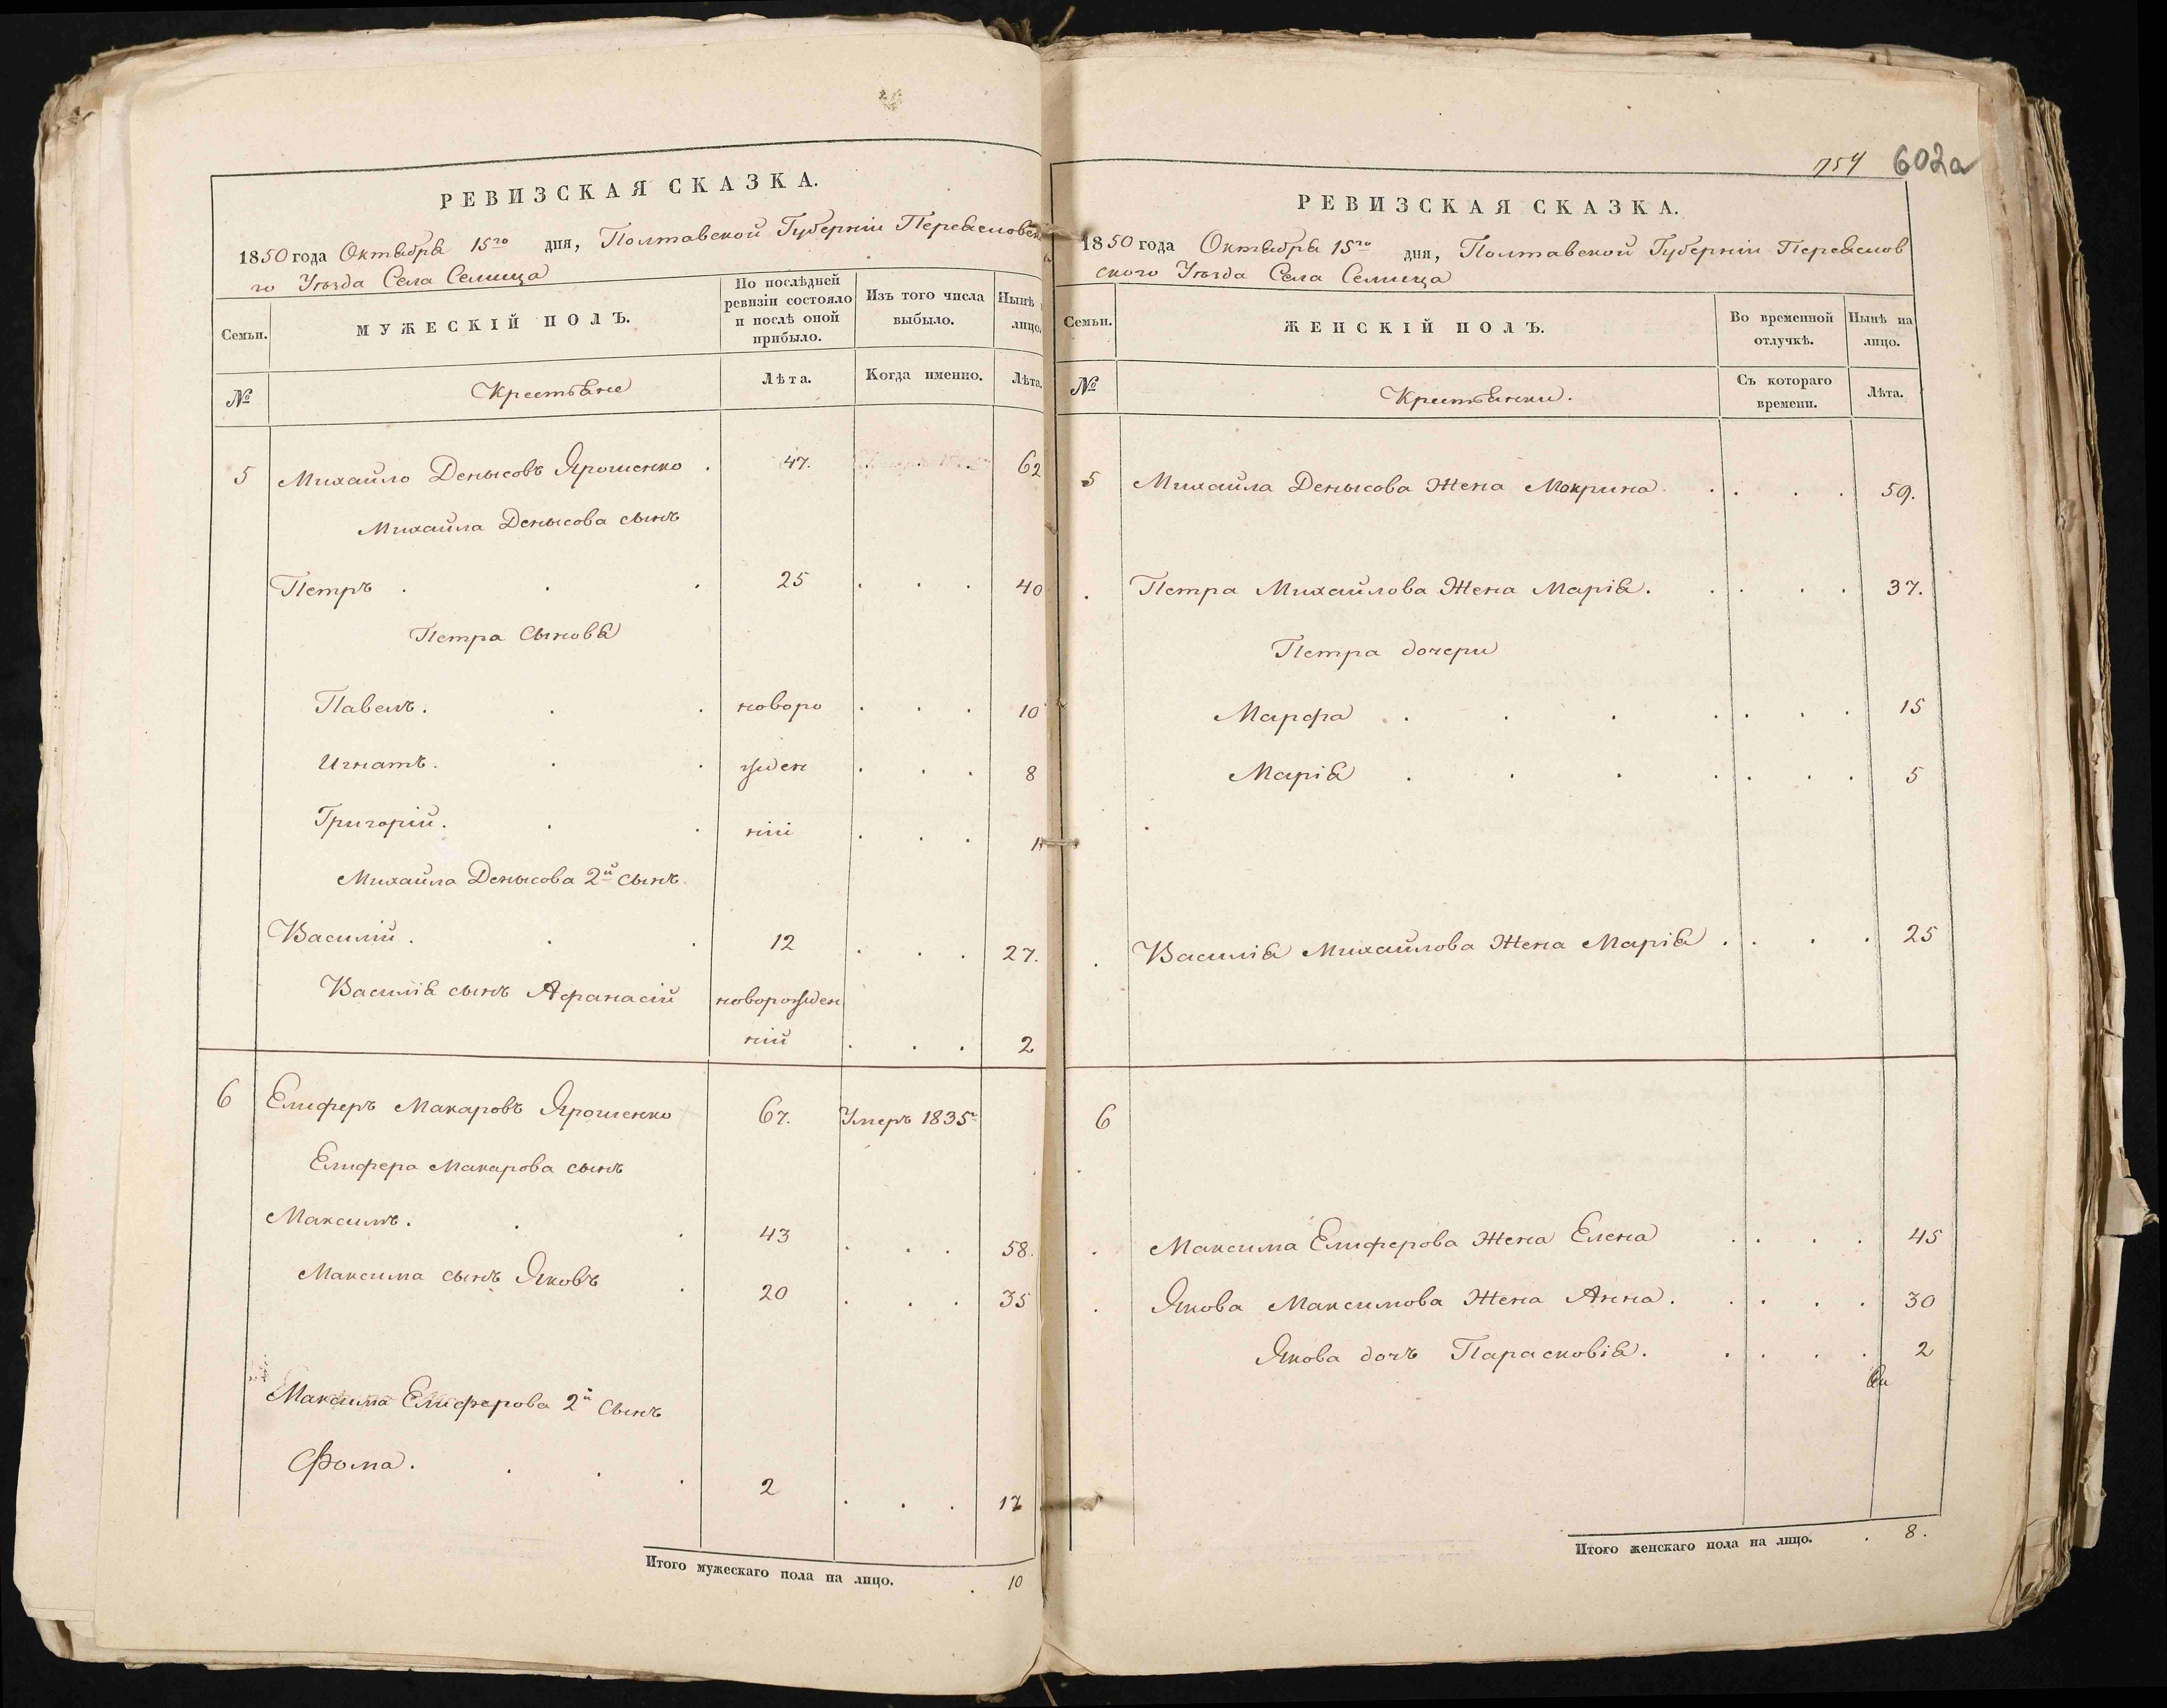 РЕВИЗСКАЯ СКАЗКА.
1850 года Октября 15го дня, Полтавской Губерніи Переяславска
го Уѣзда Села Селища
Семьи.
МУЖЕСКІЙ ПОЛЪ.
По послѣдней ревизіи состояло и послѣ оной прибыло.
Изъ того числа выбыло.
Нынѣ
лицо.
№
Крестьяне
Лѣта.
Когда именно.
Лѣта.
5 Михайло Денысовъ Ярошенко . 47. . . . 62
Михайла Денысова сынъ
Петръ . . . 25 . . . 40
Петра сыновя
Павелъ. . . новоро . . . 10
Игнатъ. . . жден . . . 8
Григорій. . . ніи . . . 1
Михайла Денысова 2й сынъ
Василій . . . 12 . . . 27.
Василія сынъ Афанасій новорожден
ній . . . 2
6 Елиферъ Макаровъ Ярошенко 67. Умеръ 1835г
Елифера Макарова сынъ
Максимъ. . . 43 . . . 58.
Максима сынъ Яковъ . 20 . . . 35
Максима Елиферова 2й сынъ
Фома. . . . 2 . . . 17
Итого мужескаго пола на лицо. . 10
754 602а
РЕВИЗСКАЯ СКАЗКА.
1850 года Октября 15го дня, Полтавской Губерніи Переяслав
ского Уѣзда Села Селища
Семьи.
ЖЕНСКІЙ ПОЛЪ.
Во временной отлучкѣ.
Нынѣ на лицо.
№
Крестьянки.
Съ котораго времени.
Лѣта.
5 Михайла Денысова Жена Мокрина . . . . 59.
Петра Михайлова Жена Марія. . . . . 37.
Петра дочери
Марфа . . . . . . . 15
Марія . . . . . . . 5
Василія Михайлова Жена Марія . . . . 25
6
Максима Елиферова Жена Елена . . . . 45
Якова Максимова Жена Анна. . . . . 30
Якова дочь Парасковія. . . . . 2
Итого женскаго пола на лицо. . 8.